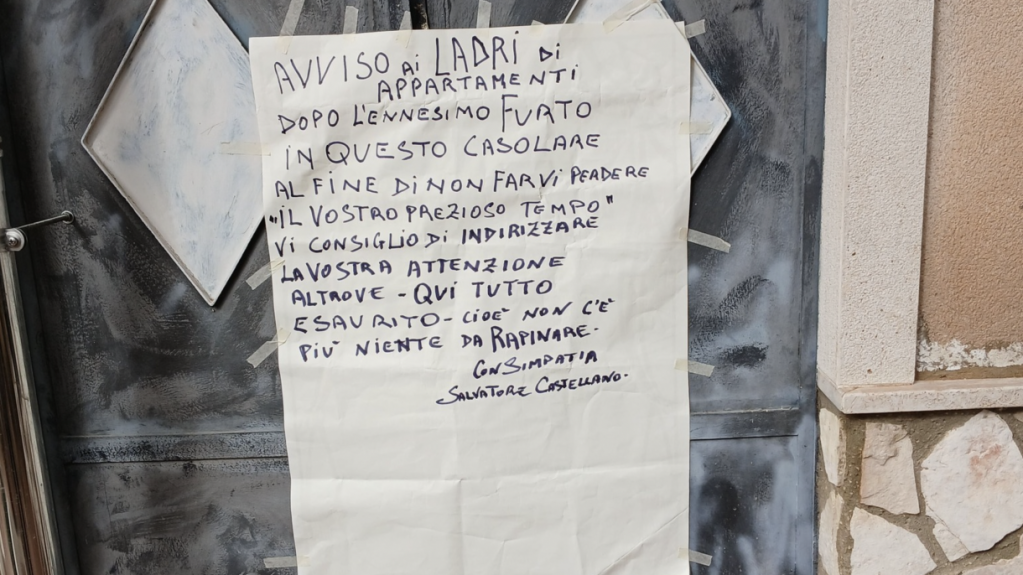 AVVISO Ai LADRI Di
APPARTAMENTi
DOPO L'ENNESIMO FURTO
iN QUESTO CASOLARE
AL FINE Di NON FARVi PERDERE
"iL VOSTRO PREZIOSO TEMPO"
Vi CONSIGLIO Di INDIRIZZARE
LA VOSTRA ATTENZIONE
ALTROVE - QUI TUTTO
ESAURITO - CIOE' NON C'E'
PIU' NIENTE DA RAPINARE.
CON SIMPATIA
SALVATORE CASTELLANO.